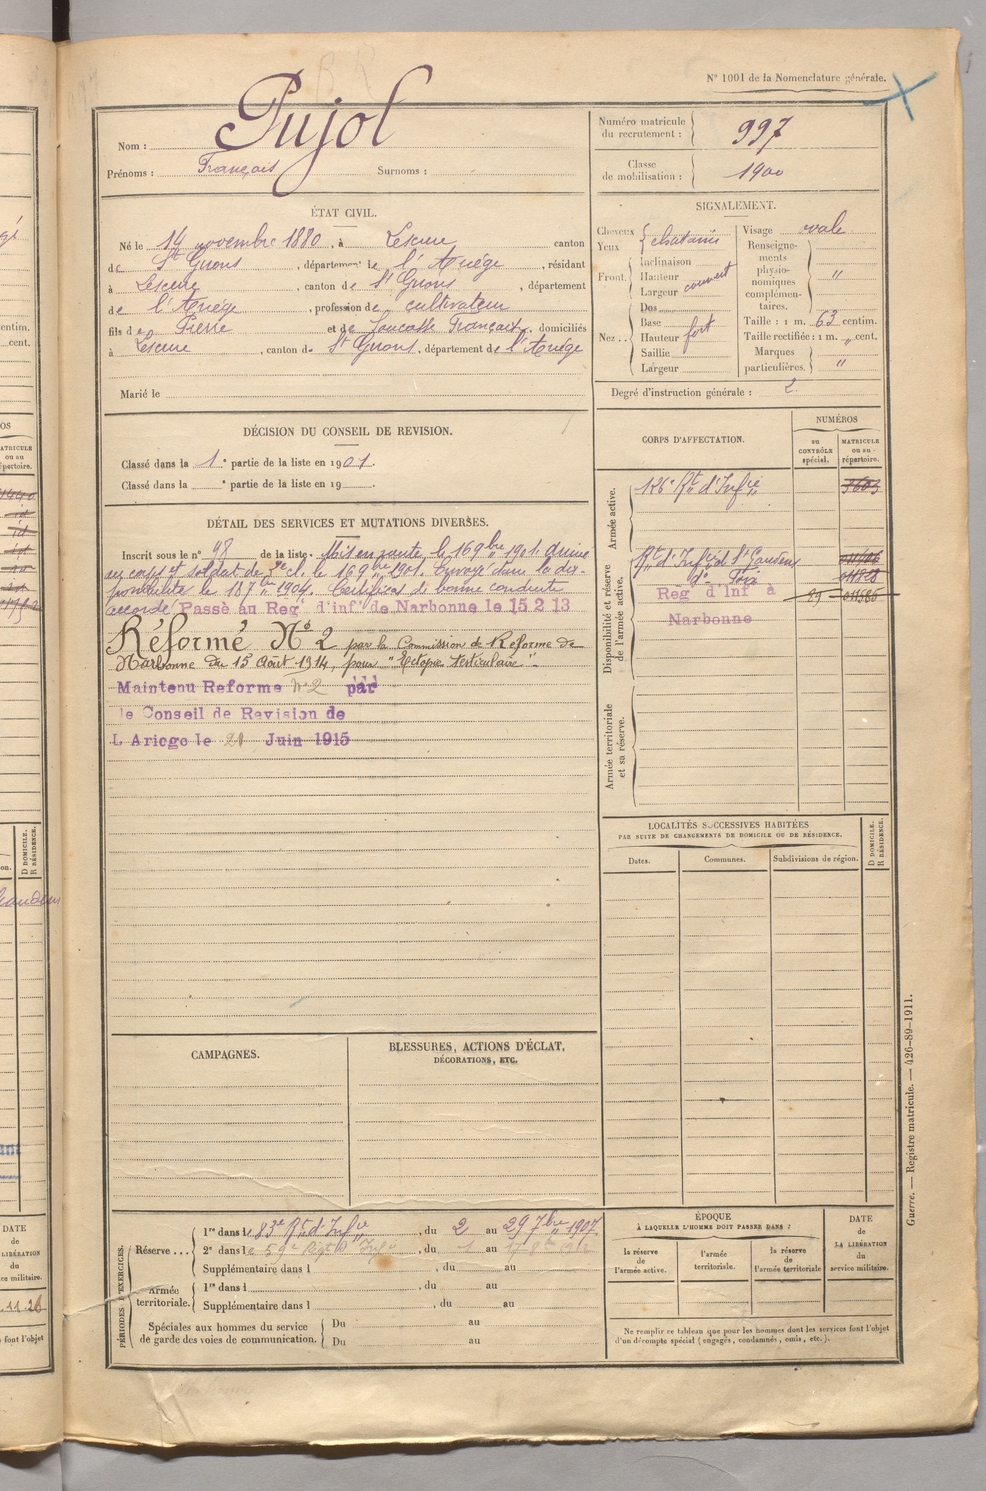 N° 1001 de la Nomenclature générale.
Nom : Pujol
Prénoms : François Surnoms :
Numéro matricule du recrutement : 997
Classe de mobilisation : 1900
ÉTAT CIVIL.
Né le 14 novembre 1880, à Lescure canton
de St Girons, département de l'Ariége, résidant
à Lescure, canton de St Girons, département
de l'Ariége, profession de cultivateur
fils de Pierre et de Françoise, domiciliés
à Lescure, canton de St Girons, département de l'Ariége
Marié le
SIGNALEMENT.
Cheveux
Yeux chatains
Front. Inclinaison
Hauteur
Largeur couvert
Nez.. Dos
Base
Hauteur fort
Saillie
Largeur
Visage ovale
Renseignements physionomiques complémentaires. "
Taille : 1 m. 63 centim.
Taille rectifiée : 1 m. " cent.
Marques particulières. "
Degré d'instruction générale : 2.
DÉCISION DU CONSEIL DE REVISION.
Classé dans la 1e partie de la liste en 1901.
Classé dans la e partie de la liste en 19
DÉTAIL DES SERVICES ET MUTATIONS DIVERSES.
Inscrit sous le n° 98 de la liste. Mis en route le 16 9bre 1901. Arrivé
au corps et soldat de 2e cl. le 16 9bre 1901. Envoyé dans la dis-
ponibilité le 18 7bre 1904. Certificat de bonne conduite
accordé Passé au Reg. d'inf. de Narbonne le 15 2 13
Réformé No 2 par la Commission de Réforme de
Narbonne du 15 Août 1914, pour "Ectopie testiculaire".
Maintenu Reforme n°2 par
le Conseil de Revision de
L Ariege le 21 Juin 1915
CORPS D'AFFECTATION.
NUMÉROS
au CONTRÔLE spécial.
MATRICULE ou au répertoire.
Armée active.
126e Rt d'Infie 3603
Disponibilité et réserve de l'armée active.
Rt d'Infie de St Gaudens
do Foix
Reg d'Inf à 89
Narbonne
Armée territoriale et sa réserve.
LOCALITÉS SUCCESSIVES HABITÉES
PAR SUITE DE CHANGEMENTS DE DOMICILE OU DE RÉSIDENCE.
Dates. Communes. Subdivisions de région. D DOMICILE. R RÉSIDENCE.
CAMPAGNES.
BLESSURES, ACTIONS D'ÉCLAT,
DÉCORATIONS, ETC.
PÉRIODES D'EXERCICES.
Réserve... 1re dans le 83e Rt d'Infie, du 2 au 29 7bre 1907.
2e dans le 59e Regt d'Infie, du 1 au 17
Supplémentaire dans l , du au
Armée territoriale. 1re dans l , du au
Supplémentaire dans l , du au
Spéciales aux hommes du service Du au
de garde des voies de communication. Du au
ÉPOQUE
À LAQUELLE L'HOMME DOIT PASSER DANS :
la réserve de l'armée active.
l'armée territoriale.
la réserve de l'armée territoriale
DATE de LA LIBÉRATION du service militaire.
Ne remplir ce tableau que pour les hommes dont les services font l'objet
d'un décompte spécial (engagés, condamnés, omis, etc.).
Guerre. — Registre matricule. — 426-89-1911.